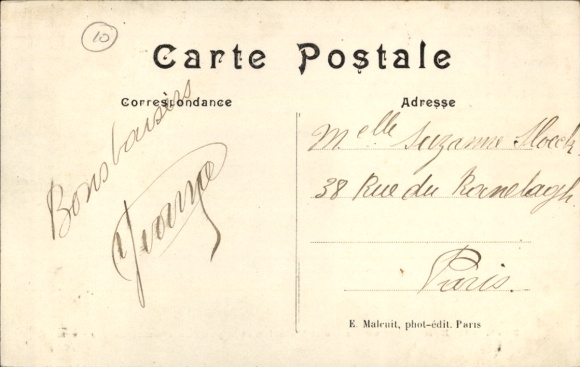 10
Carte Postale
Correspondance
Adresse
Bons baisers
Jeanne
Melle Suzanne
38 Rue du Ranelagh
Paris.
E. Malcuit, phot-édit. Paris